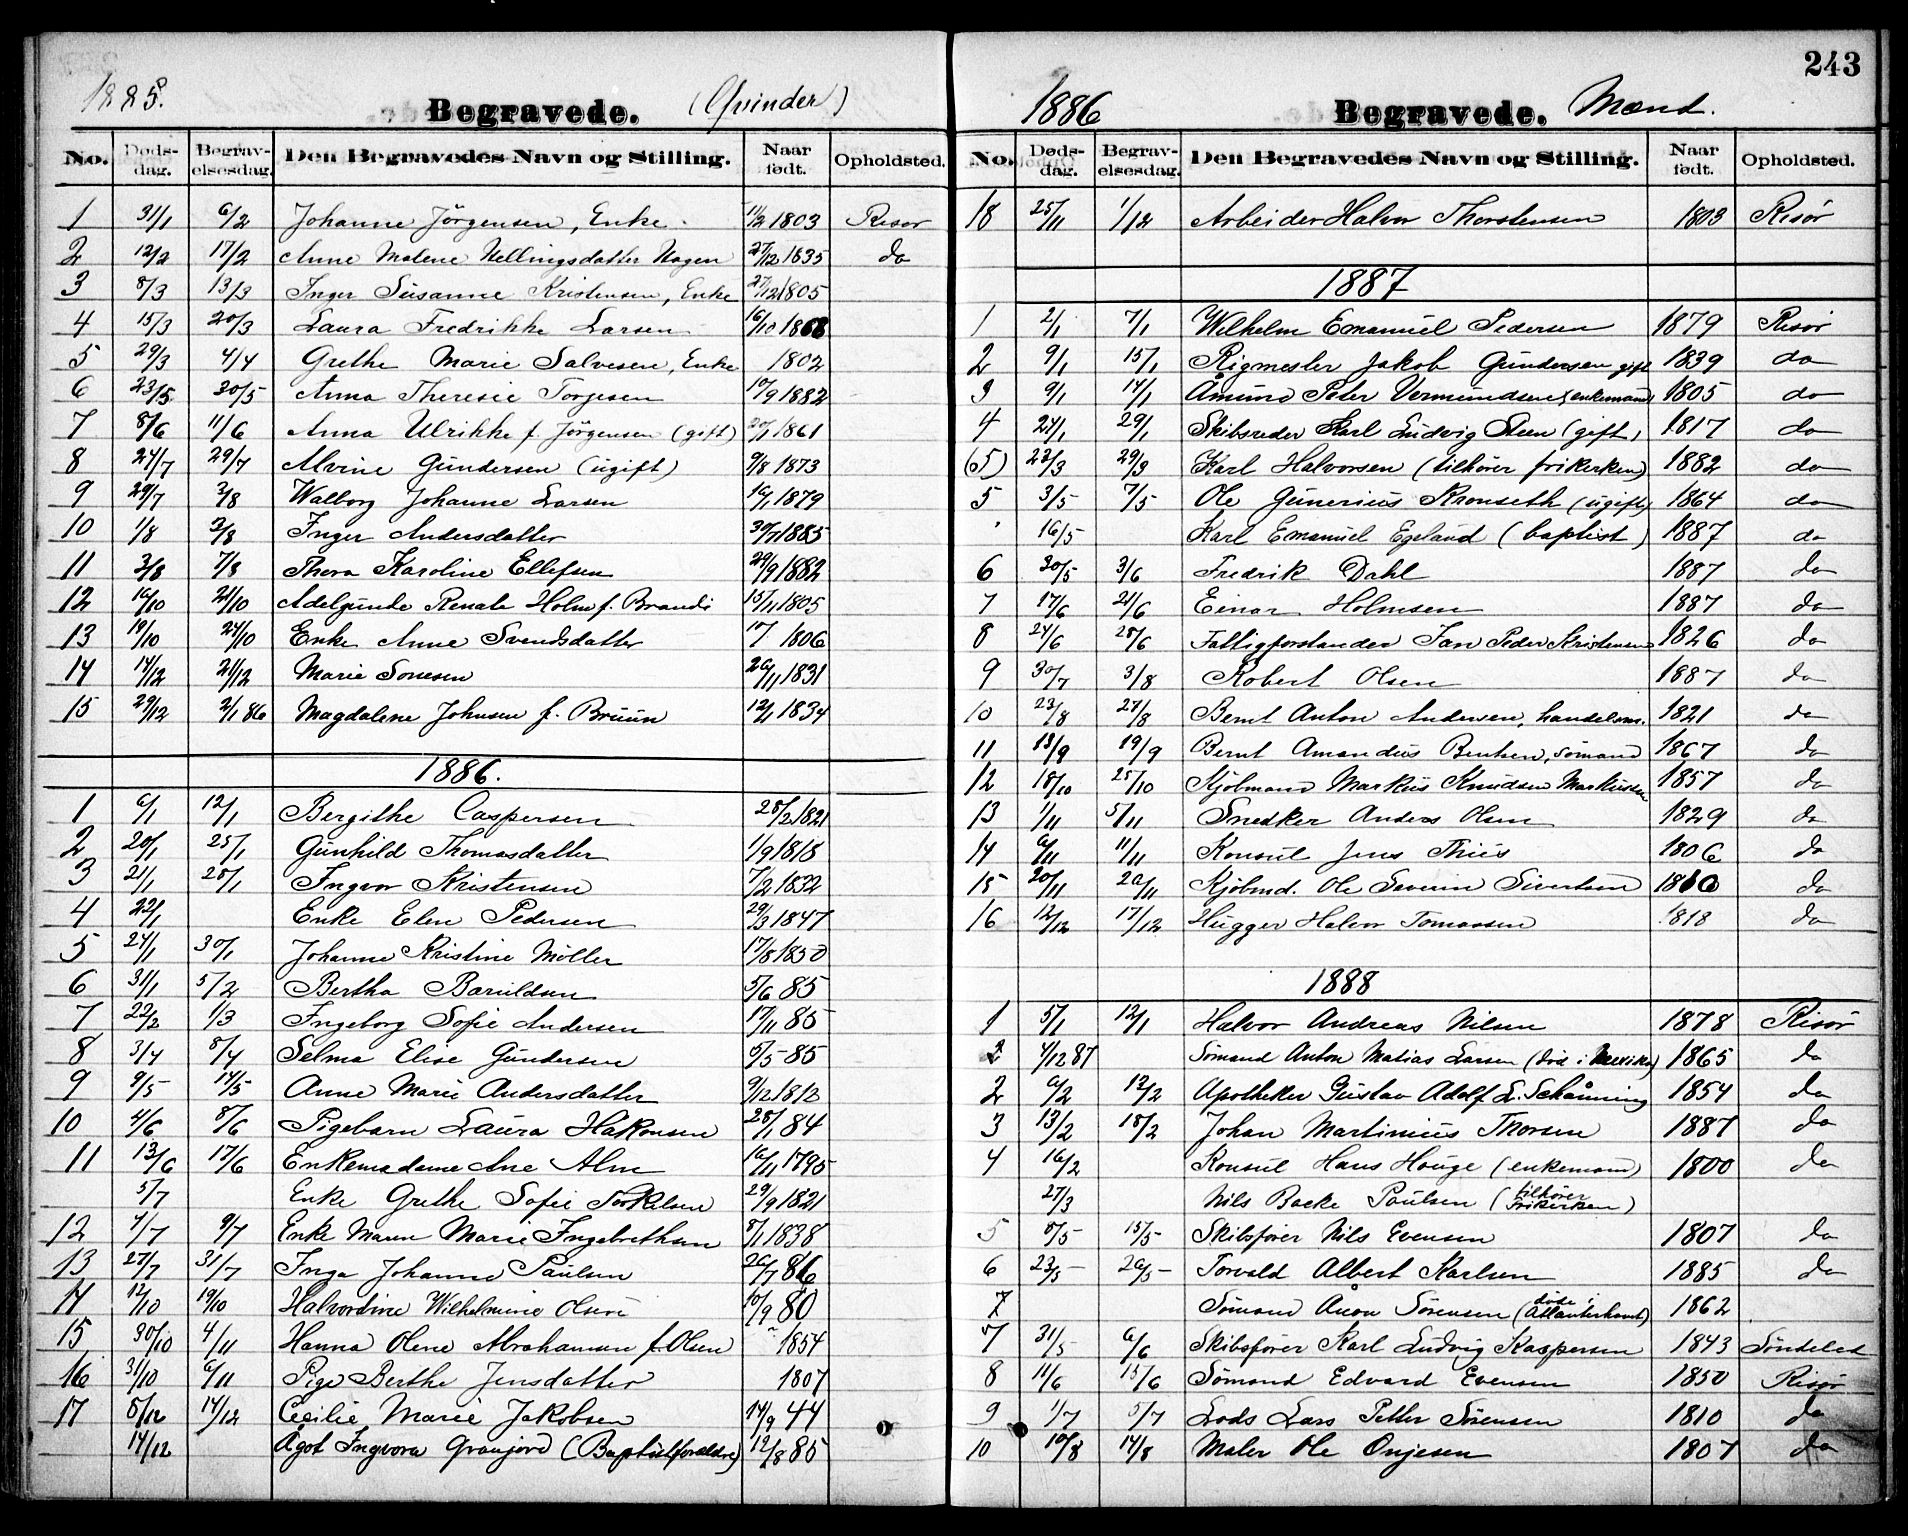 1885.
Begravede. (Qvinder)
No. Døds-dag. Begrav-elsesdag. Den Begravedes Navn og Stilling. Naar født. Opholdsted.
1 31/1 6/2 Johanne Jörgensen, Enke. 11/2 1803 Risør
2 12/2 17/2 Anne Malene Hellingsdatter Hagen 27/12 1835 do
3 8/3 13/3 Inger Susanne Kristensen, Enke 27/12 1805
4 15/3 20/3 Laura Fredrikke Larsen 16/10 1868
5 29/3 4/4 Grethe Marie Salvesen, Enke 1802
6 23/5 30/5 Anna Theresie Torjesen 10/9 1882
7 8/6 11/6 Anna Ulrikke f. Jörgensen (gift) 20/1 1861
8 24/7 29/7 Alvine Gundersen (ugift) 9/8 1873
9 29/7 3/8 Walborg Johanne Larsen 16/1 1879
10 1/8 3/8 Inger Andersdatter 30/7 1885
11 3/8 7/8 Thora Karoline Ellefsen 29/9 1882
12 16/10 21/10 Adelgunde Renate Holm f. Brandi 15/11 1805
13 19/10 24/10 Enke Anne Svendsdatter 1806
14 14/12 21/12 Marie Sonesen 26/11 1831
15 29/12 2/1 86 Magdalene Johnsen f. Bruun 12/1 1834
1886.
1 6/1 12/1 Bergithe Caspersen 28/2 1821
2 20/1 25/1 Gunhild Thomasdatter 1/9 1818
3 21/1 28/1 Ingvor Kristensen 7/2 1832
4 22/1 Enke Elen Pedersen 29/3 1847
5 24/1 30/1 Johanne Kristine Möller 17/8 1850
6 31/1 5/2 Bertha Baruldsen 5/6 85
7 22/2 1/3 Ingeborg Sofie Andersen 17/11 85
8 3/4 8/4 Selma Elise Gundersen 6/5 85
9 9/5 14/5 Anne Marie Andersdatter 9/12 1812
10 4/6 8/6 Pigebarn Laura Håkonsen 28/1 84
11 13/6 17/6 Enkemadame Ane Alm 16/11 1795
5/7 Enke Grethe Sofie Torkelsen 29/9 1821
12 4/7 9/7 Enke Maren Marie Ingebrethsen 8/1 1838
13 27/7 31/7 Inga Johanne Paulsen 26/7 86
14 12/10 19/10 Halvordine Wilhelmine Olsen 10/9 80
15 30/10 4/11 Hanna Olene Abrahamsen f. Olsen 1854
16 31/10 6/11 Pige Berthe Jensdatter 1807
17 8/12 14/12 Cecilie Marie Jakobsen 14/9 44
14/12 Agot Ingvora Granjord (Baptistforældre) 12/8 85
243
1886 Begravede. Mænd.
No. Døds-dag. Begrav-elsesdag. Den Begravedes Navn og Stilling. Naar født. Opholdsted.
18 25/11 1/12 Arbeider Halvor Thorstensen 1803 Risør
1887
1 2/1 7/1 Wilhelm Emanuel Pedersen 1879 Risør
2 9/1 15/1 Rigmester Jakob Gundersen gift 1839 do
3 9/1 14/1 Åmund Peter Vermundsen (enkemand) 1805 do
4 24/1 29/1 Skibsreder Karl Ludvig Steen (gift) 1817 do
(5) 23/3 29/3 Karl Halvorsen (tilhører frikirken) 1882 do
5 3/5 7/5 Ole Gunerius Kronseth (ugift) 1864 do
16/5 Karl Emanuel Egeland (baptist) 1887 do
6 30/5 3/6 Fredrik Dahl 1887 do
7 17/6 21/6 Einar Holmsen 1887 do
8 24/6 28/6 Fattigforstander Jan Peder Kristensen 1826 do
9 30/7 3/8 Robert Olsen 1887 do
10 23/8 27/8 Bernt Anton Andersen, handelsm. 1821 do
11 13/9 19/9 Bernt Amandus Bentsen, sömand 1867 do
12 18/10 25/10 Kjöbmand Markus Knudsen Markussen 1857 do
13 1/11 5/11 Snedker Anders Olsen 1829 do
14 6/11 11/11 Konsul Jens Thiis 1806 do
15 20/11 26/11 Kjöbmd. Ole Severin Sivertsen 1810 do
16 12/12 17/12 Hugger Halvor Tomassen 1818 do
1888
1 5/1 12/1 Halvor Andreas Nilsen 1878 Risør
4/12 87 Sømand Anton Matias Larsen (død i ) 1865 do
2 6/2 12/2 Apotheker Gustav Adolf L. Schånning 1854 do
3 13/2 18/2 Johan Martinius Thorsen 1887 do
4 16/2 Konsul Hans Houge (enkemand) 1800 do
27/3 Nils Backe Paulsen (tilhører Frikirken)
5 8/5 15/5 Skibsfører Nils Evensen 1807 do
6 23/5 26/5 Torvald Albert Karlsen 1885 do
7 Sømand Aron Sørensen (døde i Atlanterhavet) 1862
7 31/5 6/6 Skibsfører Karl Ludvig Kaspersen 1843 Søndeled
8 11/6 15/6 Sømand Edvard Evensen 1850 Risør
9 1/7 5/7 Lods Lars Petter Sørensen 1810 do
10 10/8 14/8 Maler Ole Onjesen 1807 do